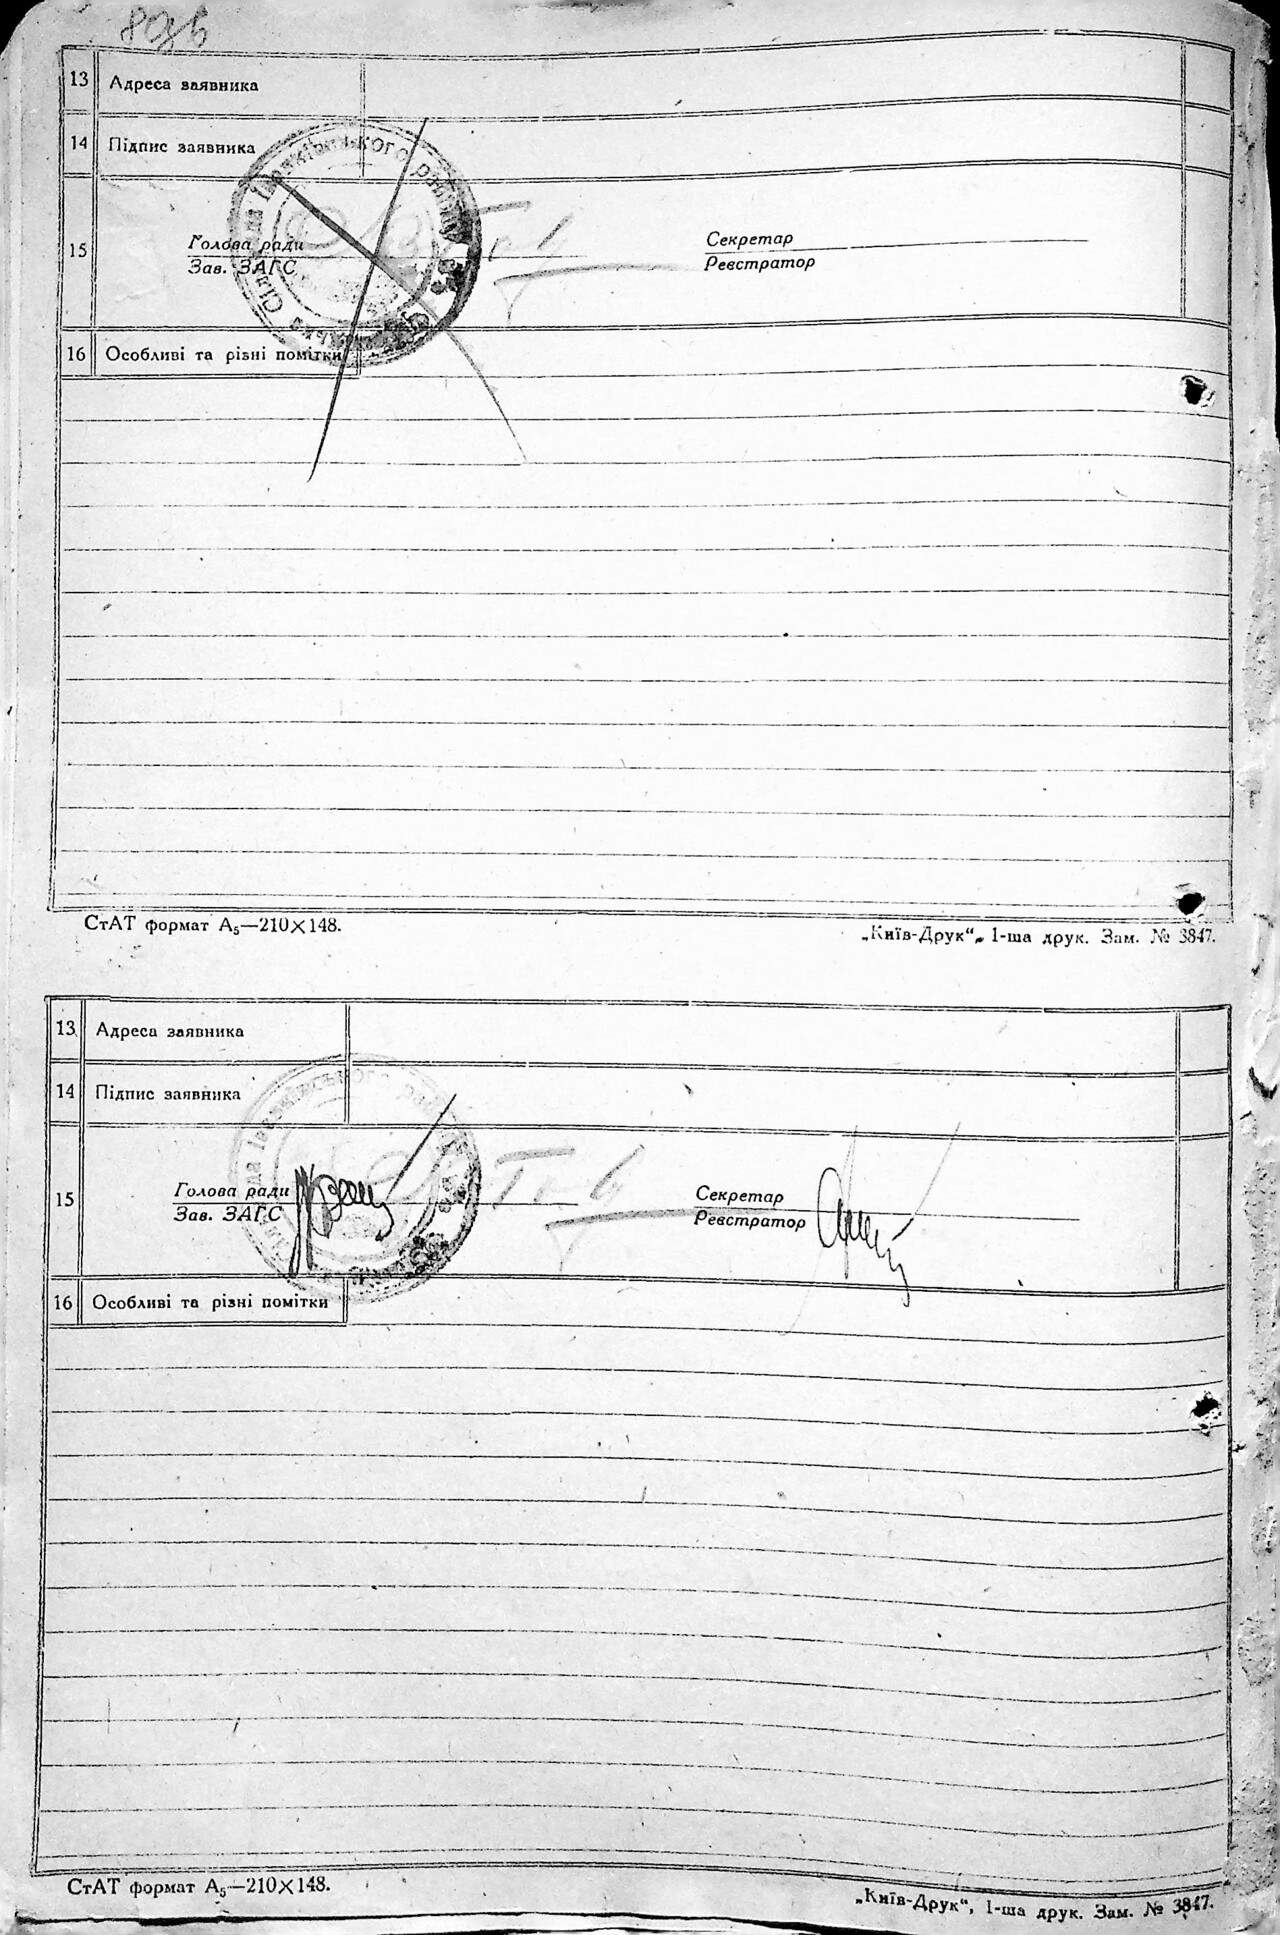 13 Адреса заявника
14 Підпис заявника
15
Голова ради
Зав. ЗАГС
Секретар
Реєстратор
16 Особливі та різні помітки
СтАТ формат А₅—210×148.
„Київ-Друк“, 1-ша друк. Зам. № 3847.
13 Адреса заявника
14 Підпис заявника
15
Голова ради
Зав. ЗАГС
Секретар
Реєстратор
16 Особливі та різні помітки
СтАТ формат А₅—210×148.
„Київ-Друк“, 1-ша друк. Зам. № 3847.